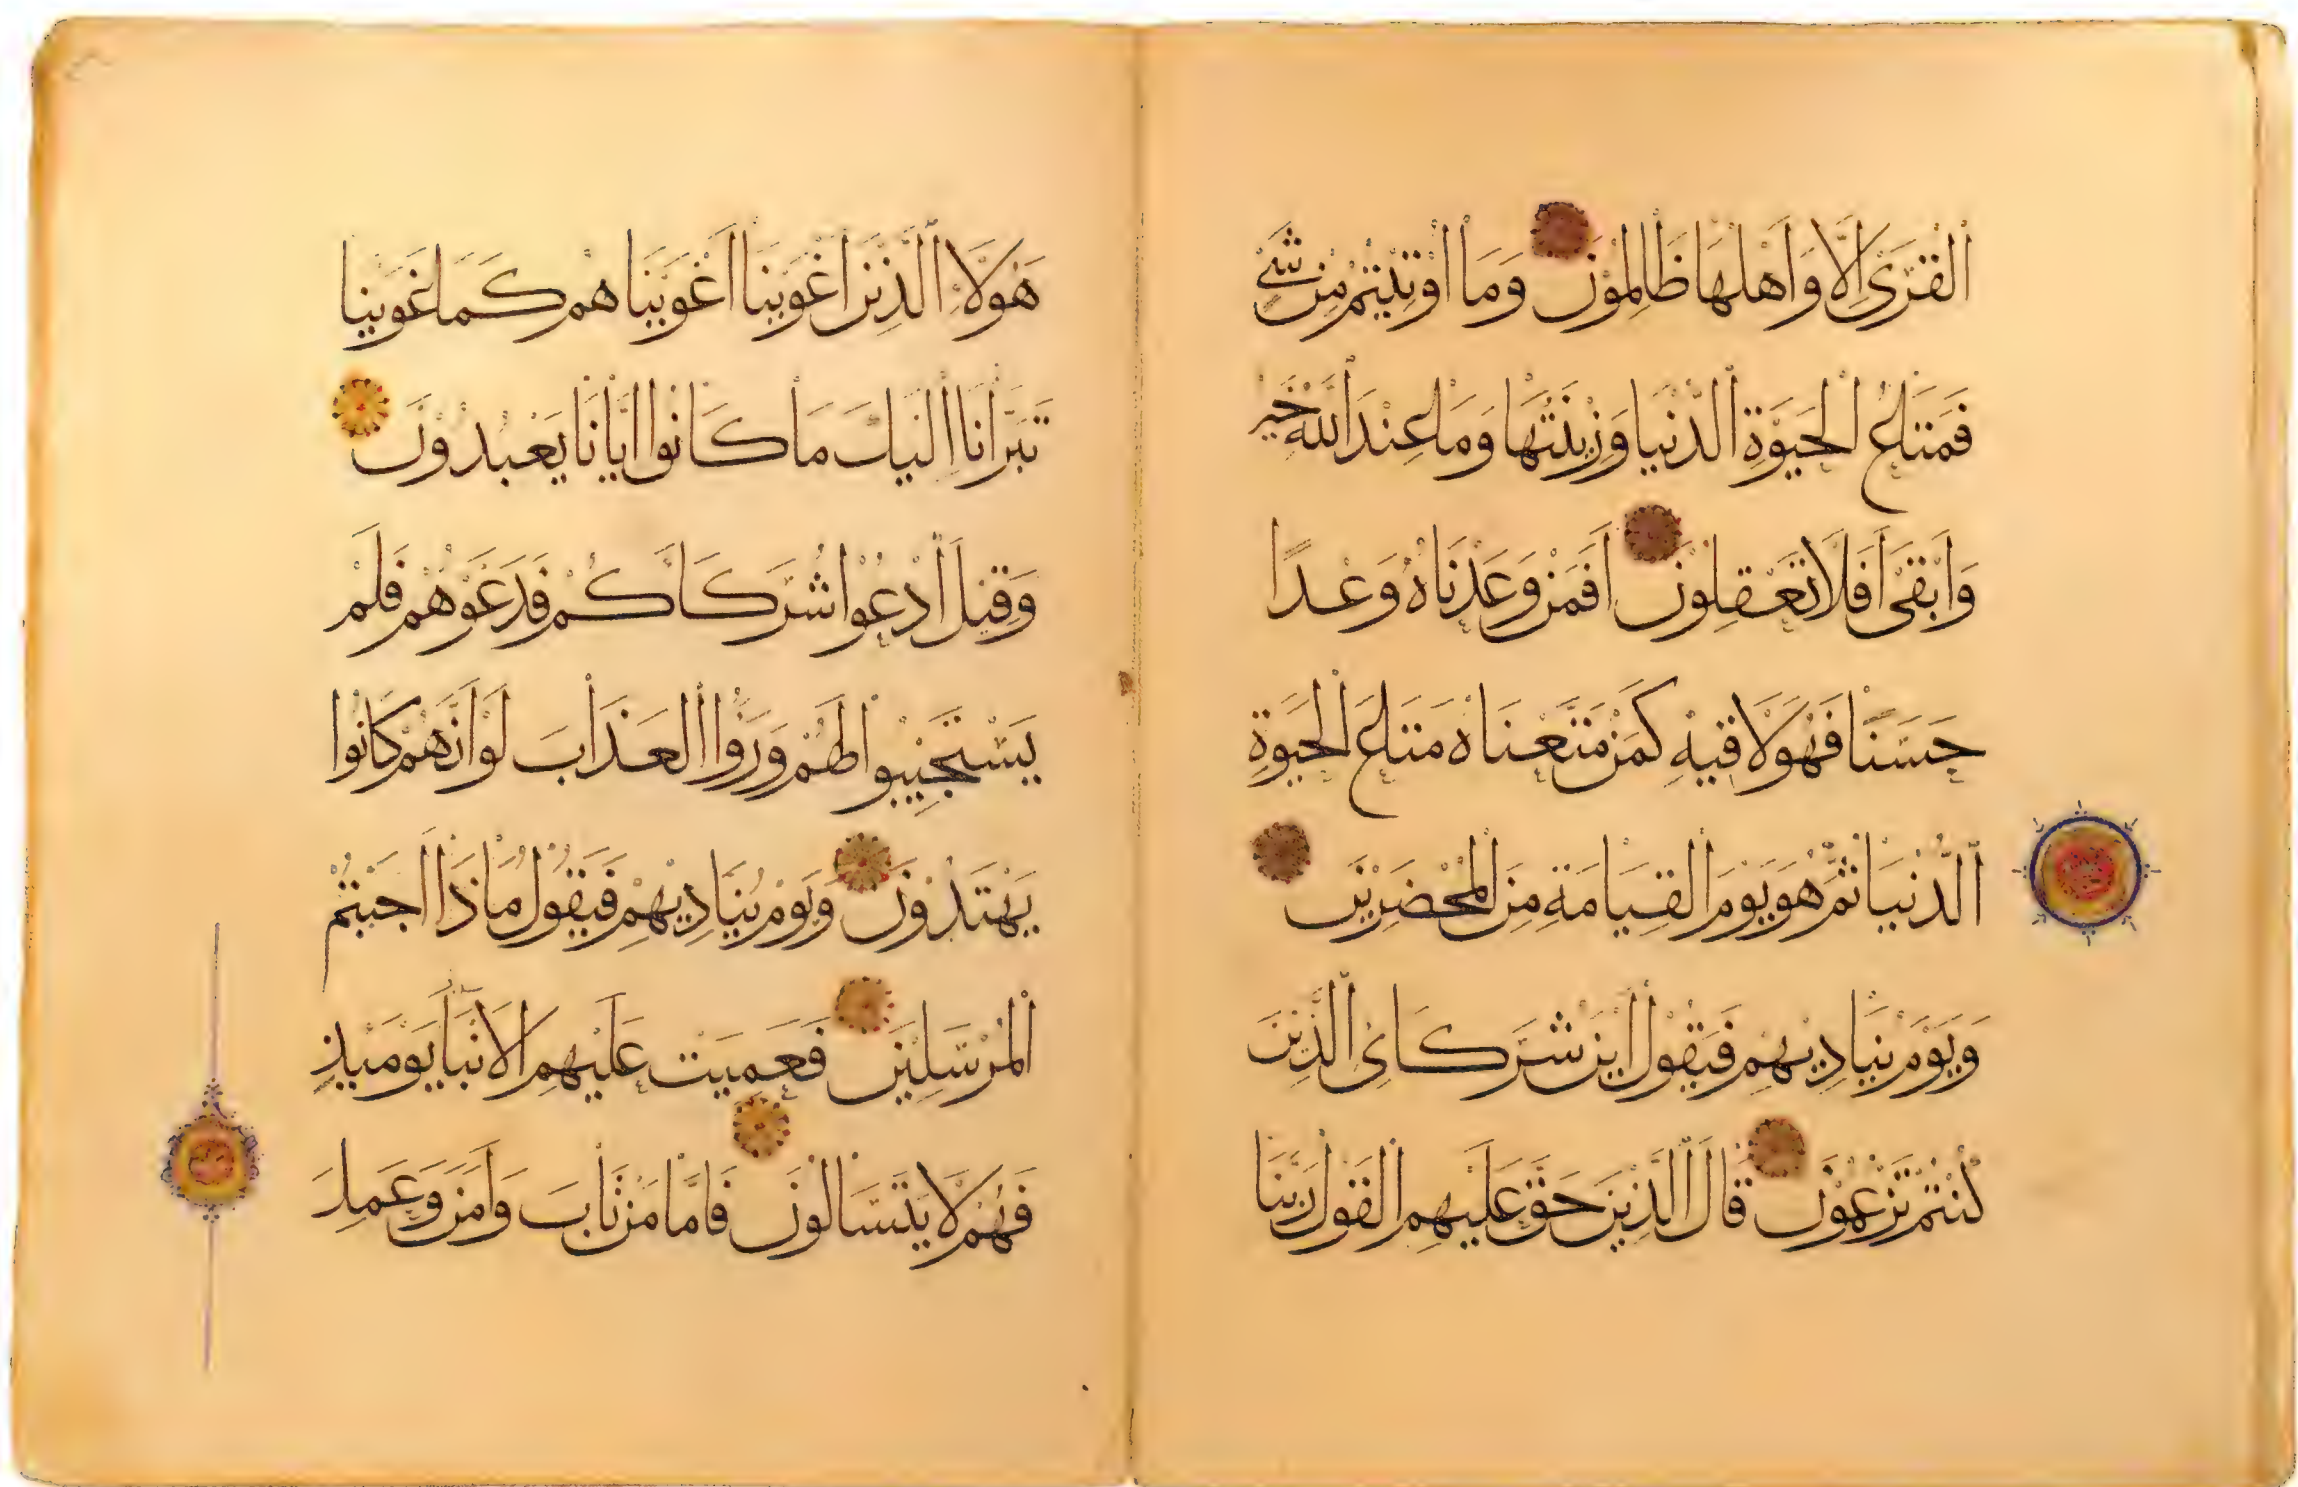 ٱلْقُرَىٰ إِلَّا وَأَهْلُهَا ظَالِمُوْنَ وَمَا أُوْتِيْتُمْ مِنْ شَيْءٍ
فَمَتَاعُ ٱلْحَيَوٰةِ ٱلدُّنْيَا وَزِيْنَتُهَا وَمَا عِنْدَ ٱللَّهِ خَيْرٌ
وَأَبْقَىٰ أَفَلَا تَعْقِلُوْنَ أَفَمَنْ وَعَدْنَاهُ وَعْدًا
حَسَنًا فَهُوَ لَاقِيْهِ كَمَنْ مَتَّعْنَاهُ مَتَاعَ ٱلْحَيَوٰةِ
ٱلدُّنْيَا ثُمَّ هُوَ يَوْمَ ٱلْقِيَامَةِ مِنَ ٱلْمُحْضَرِيْنَ
وَيَوْمَ يُنَادِيْهِمْ فَيَقُوْلُ أَيْنَ شُرَكَائِيَ ٱلَّذِيْنَ
كُنْتُمْ تَزْعُمُوْنَ قَالَ ٱلَّذِيْنَ حَقَّ عَلَيْهِمُ ٱلْقَوْلُ رَبَّنَا
هَٰؤُلَاءِ ٱلَّذِيْنَ أَغْوَيْنَا أَغْوَيْنَاهُمْ كَمَا غَوَيْنَا
تَبَرَّأْنَا إِلَيْكَ مَا كَانُوْا إِيَّانَا يَعْبُدُوْنَ
وَقِيْلَ ٱدْعُوْا شُرَكَاءَكُمْ فَدَعَوْهُمْ فَلَمْ
يَسْتَجِيْبُوْا لَهُمْ وَرَأَوُا ٱلْعَذَابَ لَوْ أَنَّهُمْ كَانُوْا
يَهْتَدُوْنَ وَيَوْمَ يُنَادِيْهِمْ فَيَقُوْلُ مَاذَا أَجَبْتُمُ
ٱلْمُرْسَلِيْنَ فَعَمِيَتْ عَلَيْهِمُ ٱلْأَنْبَاءُ يَوْمَئِذٍ
فَهُمْ لَا يَتَسَاءَلُوْنَ فَأَمَّا مَنْ تَابَ وَآمَنَ وَعَمِلَ